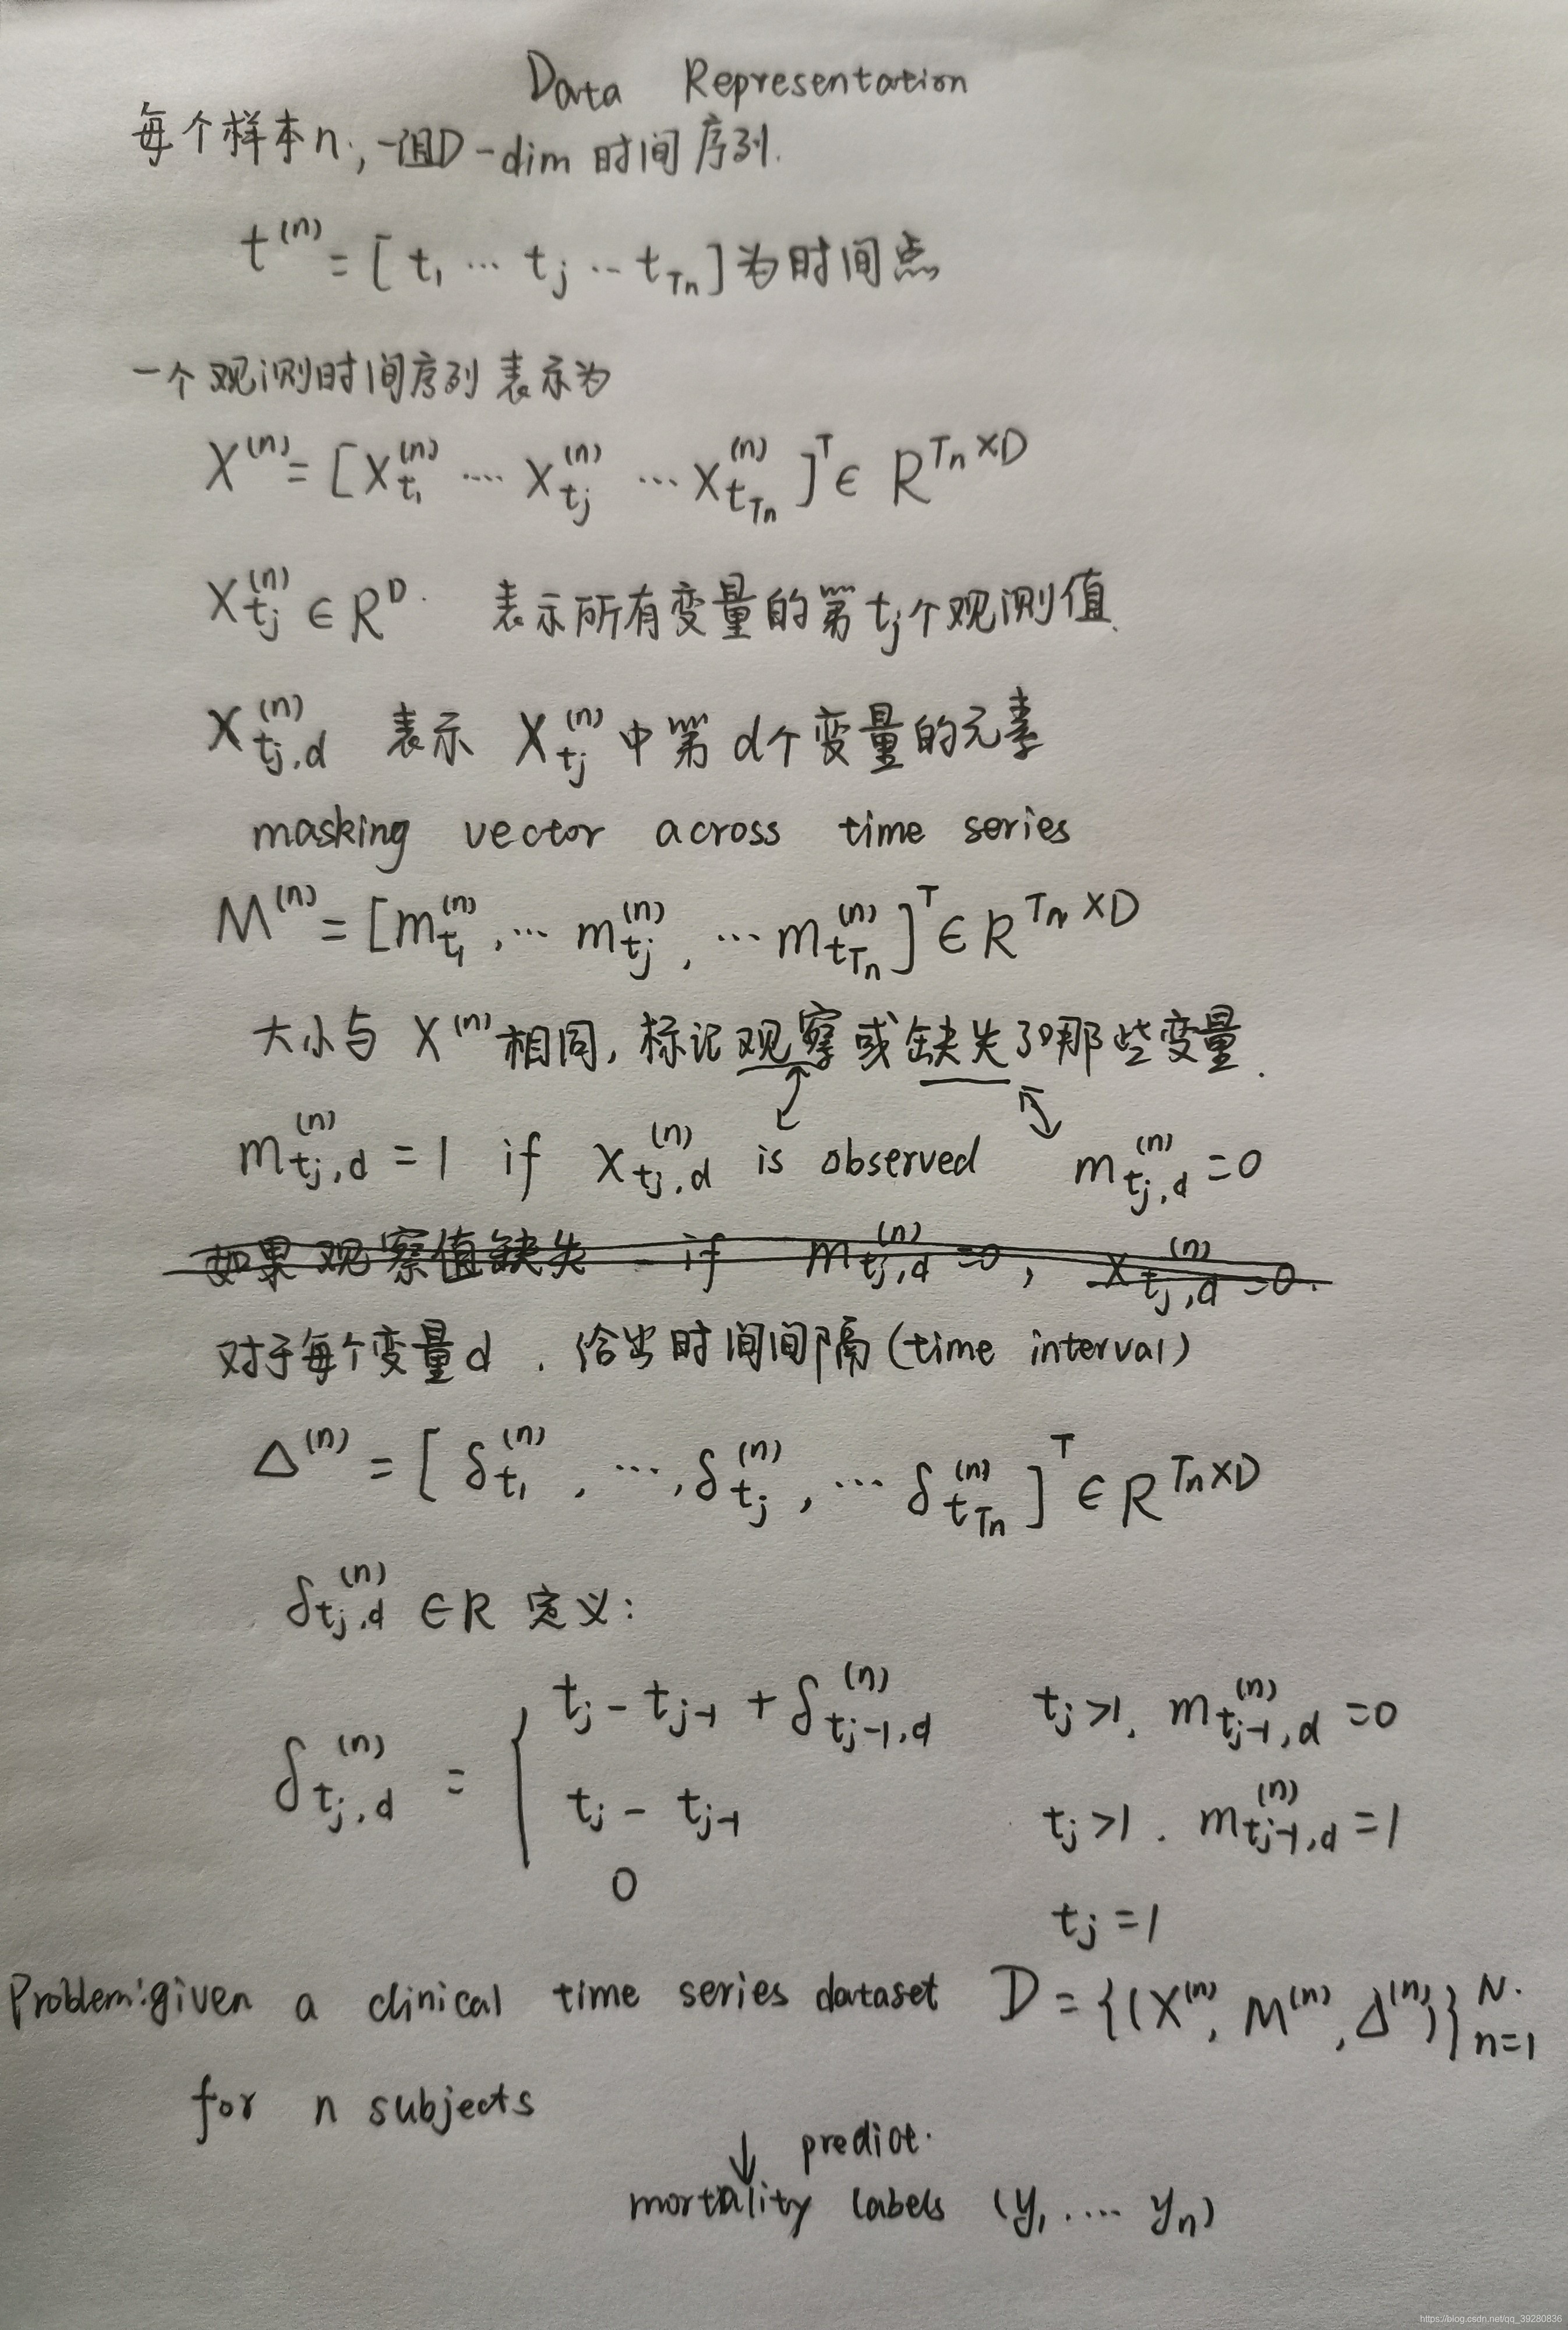 Data Representation
每个样本n,一组D-dim 时间序列.
t^(n) = [ t_1 ... t_j ... t_{T_n} ] 为时间点
一个观测时间序列 表示为
X^(n) = [ X_{t_1}^(n) .... X_{t_j}^(n) ... X_{t_{T_n}}^(n) ]^T ∈ R^{T_n×D}
X_{t_j}^(n) ∈ R^D. 表示所有变量的第t_j个观测值.
X_{t_j,d}^(n) 表示 X_{t_j}^(n) 中第d个变量的元素
masking vector across time series
M^(n) = [ m_{t_1}^(n), ... m_{t_j}^(n), ... m_{t_{T_n}}^(n) ]^T ∈ R^{T_n×D}
大小与 X^(n) 相同, 标记观察或缺失了哪些变量.
m_{t_j,d}^(n) = 1 if X_{t_j,d}^(n) is observed m_{t_j,d}^(n) = 0
如果观察值缺失 if m_{t_j,d}^(n) = 0, X_{t_j,d}^(n) = 0.
对于每个变量d. 给出时间间隔(time interval)
Δ^(n) = [ δ_{t_1}^(n), ..., δ_{t_j}^(n), ... δ_{t_{T_n}}^(n) ]^T ∈ R^{T_n×D}
δ_{t_j,d}^(n) ∈ R 定义:
δ_{t_j,d}^(n) = { t_j - t_{j-1} + δ_{t_{j-1},d}^(n) t_j >1. m_{t_{j-1},d}^(n) = 0
t_j - t_{j-1} t_j >1. m_{t_{j-1},d}^(n) = 1
0 t_j = 1
Problem: given a clinical time series dataset D = {(X^(n), M^(n), Δ^(n))}_{n=1}^N.
for n subjects
↓ predict.
mortality labels (y_1 .... y_n)
https://blog.csdn.net/qq_39280836